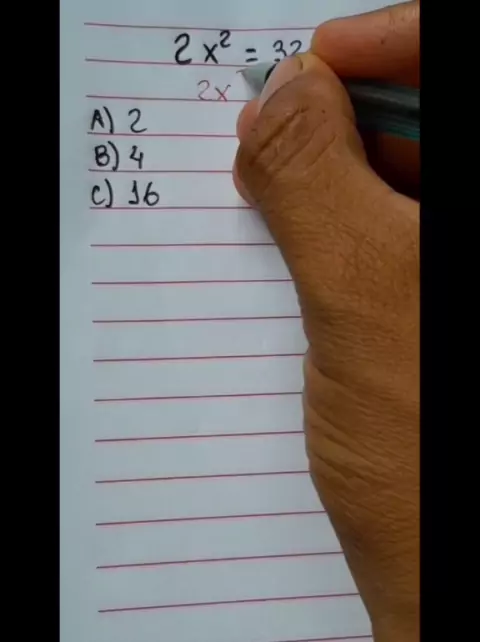 2x² = 32
2x
A) 2
B) 4
C) 16